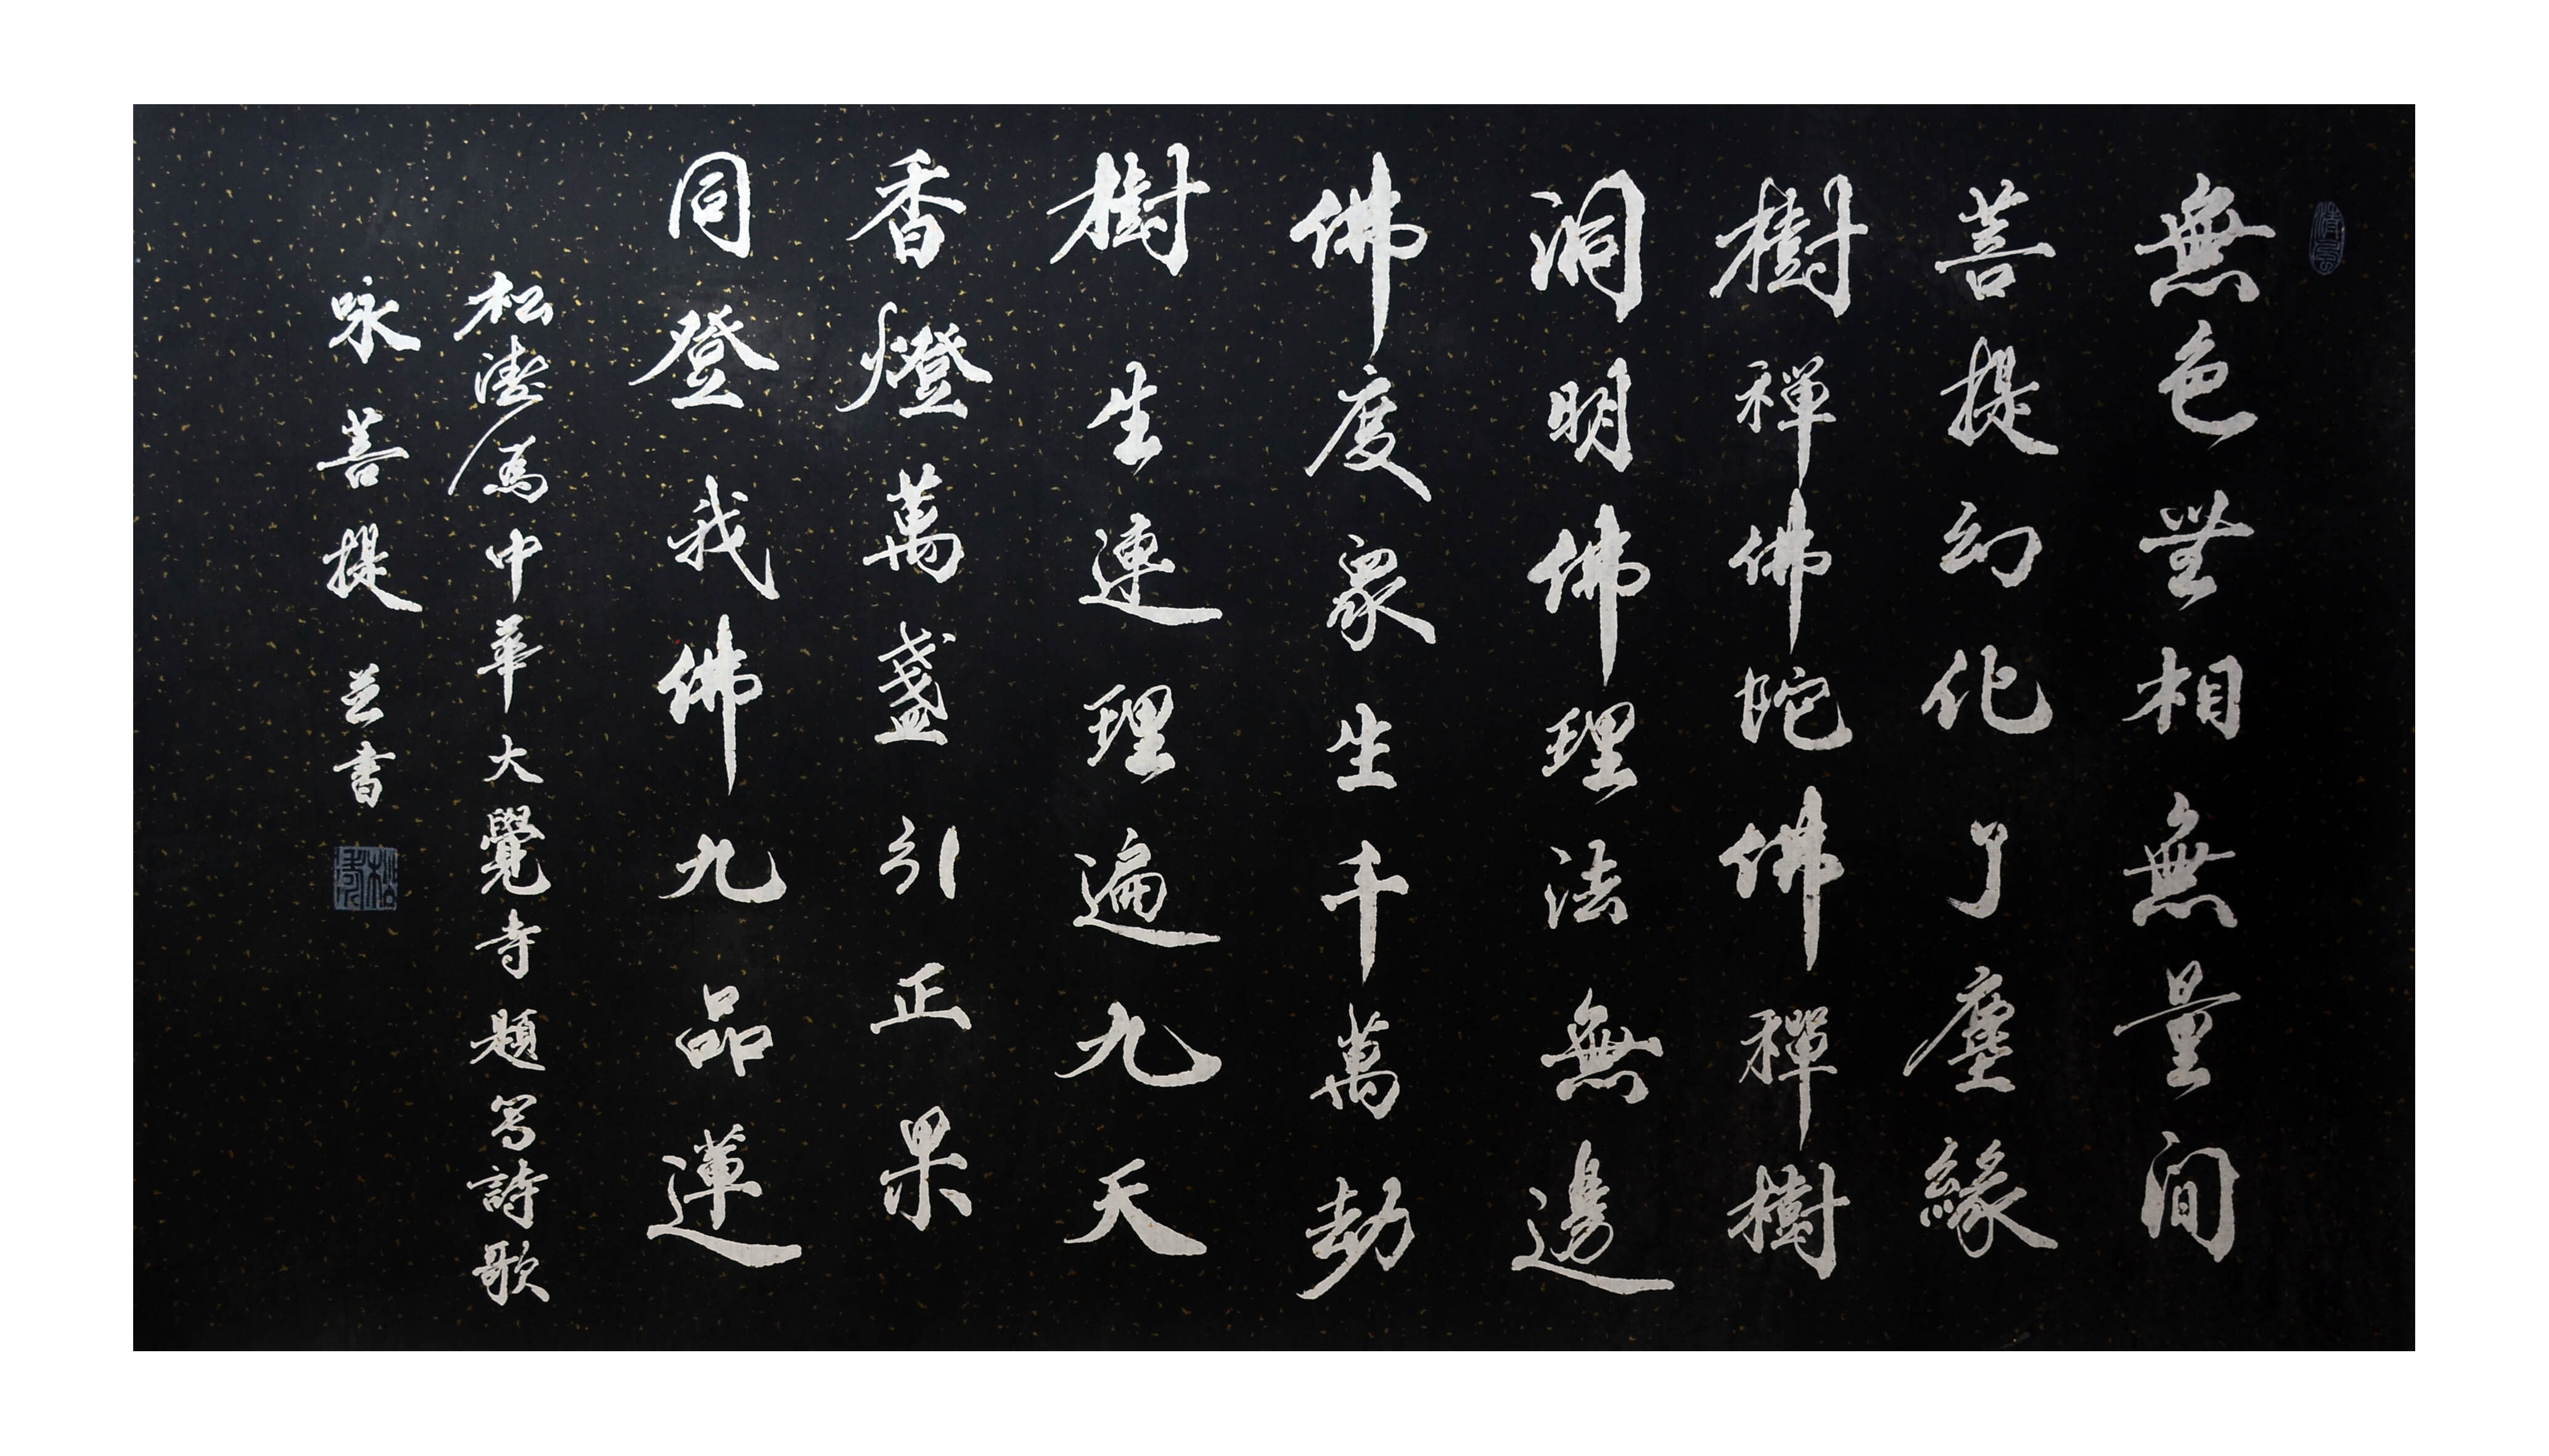 無色無相無量間
菩提幻化了塵緣
樹禪佛陀佛禪樹
洞明佛理法無邊
佛度眾生千萬劫
樹生連理遍九天
香燈萬盞引正果
同登我佛九品蓮
松濤為中華大覺寺題寫詩歌
咏菩提 並書